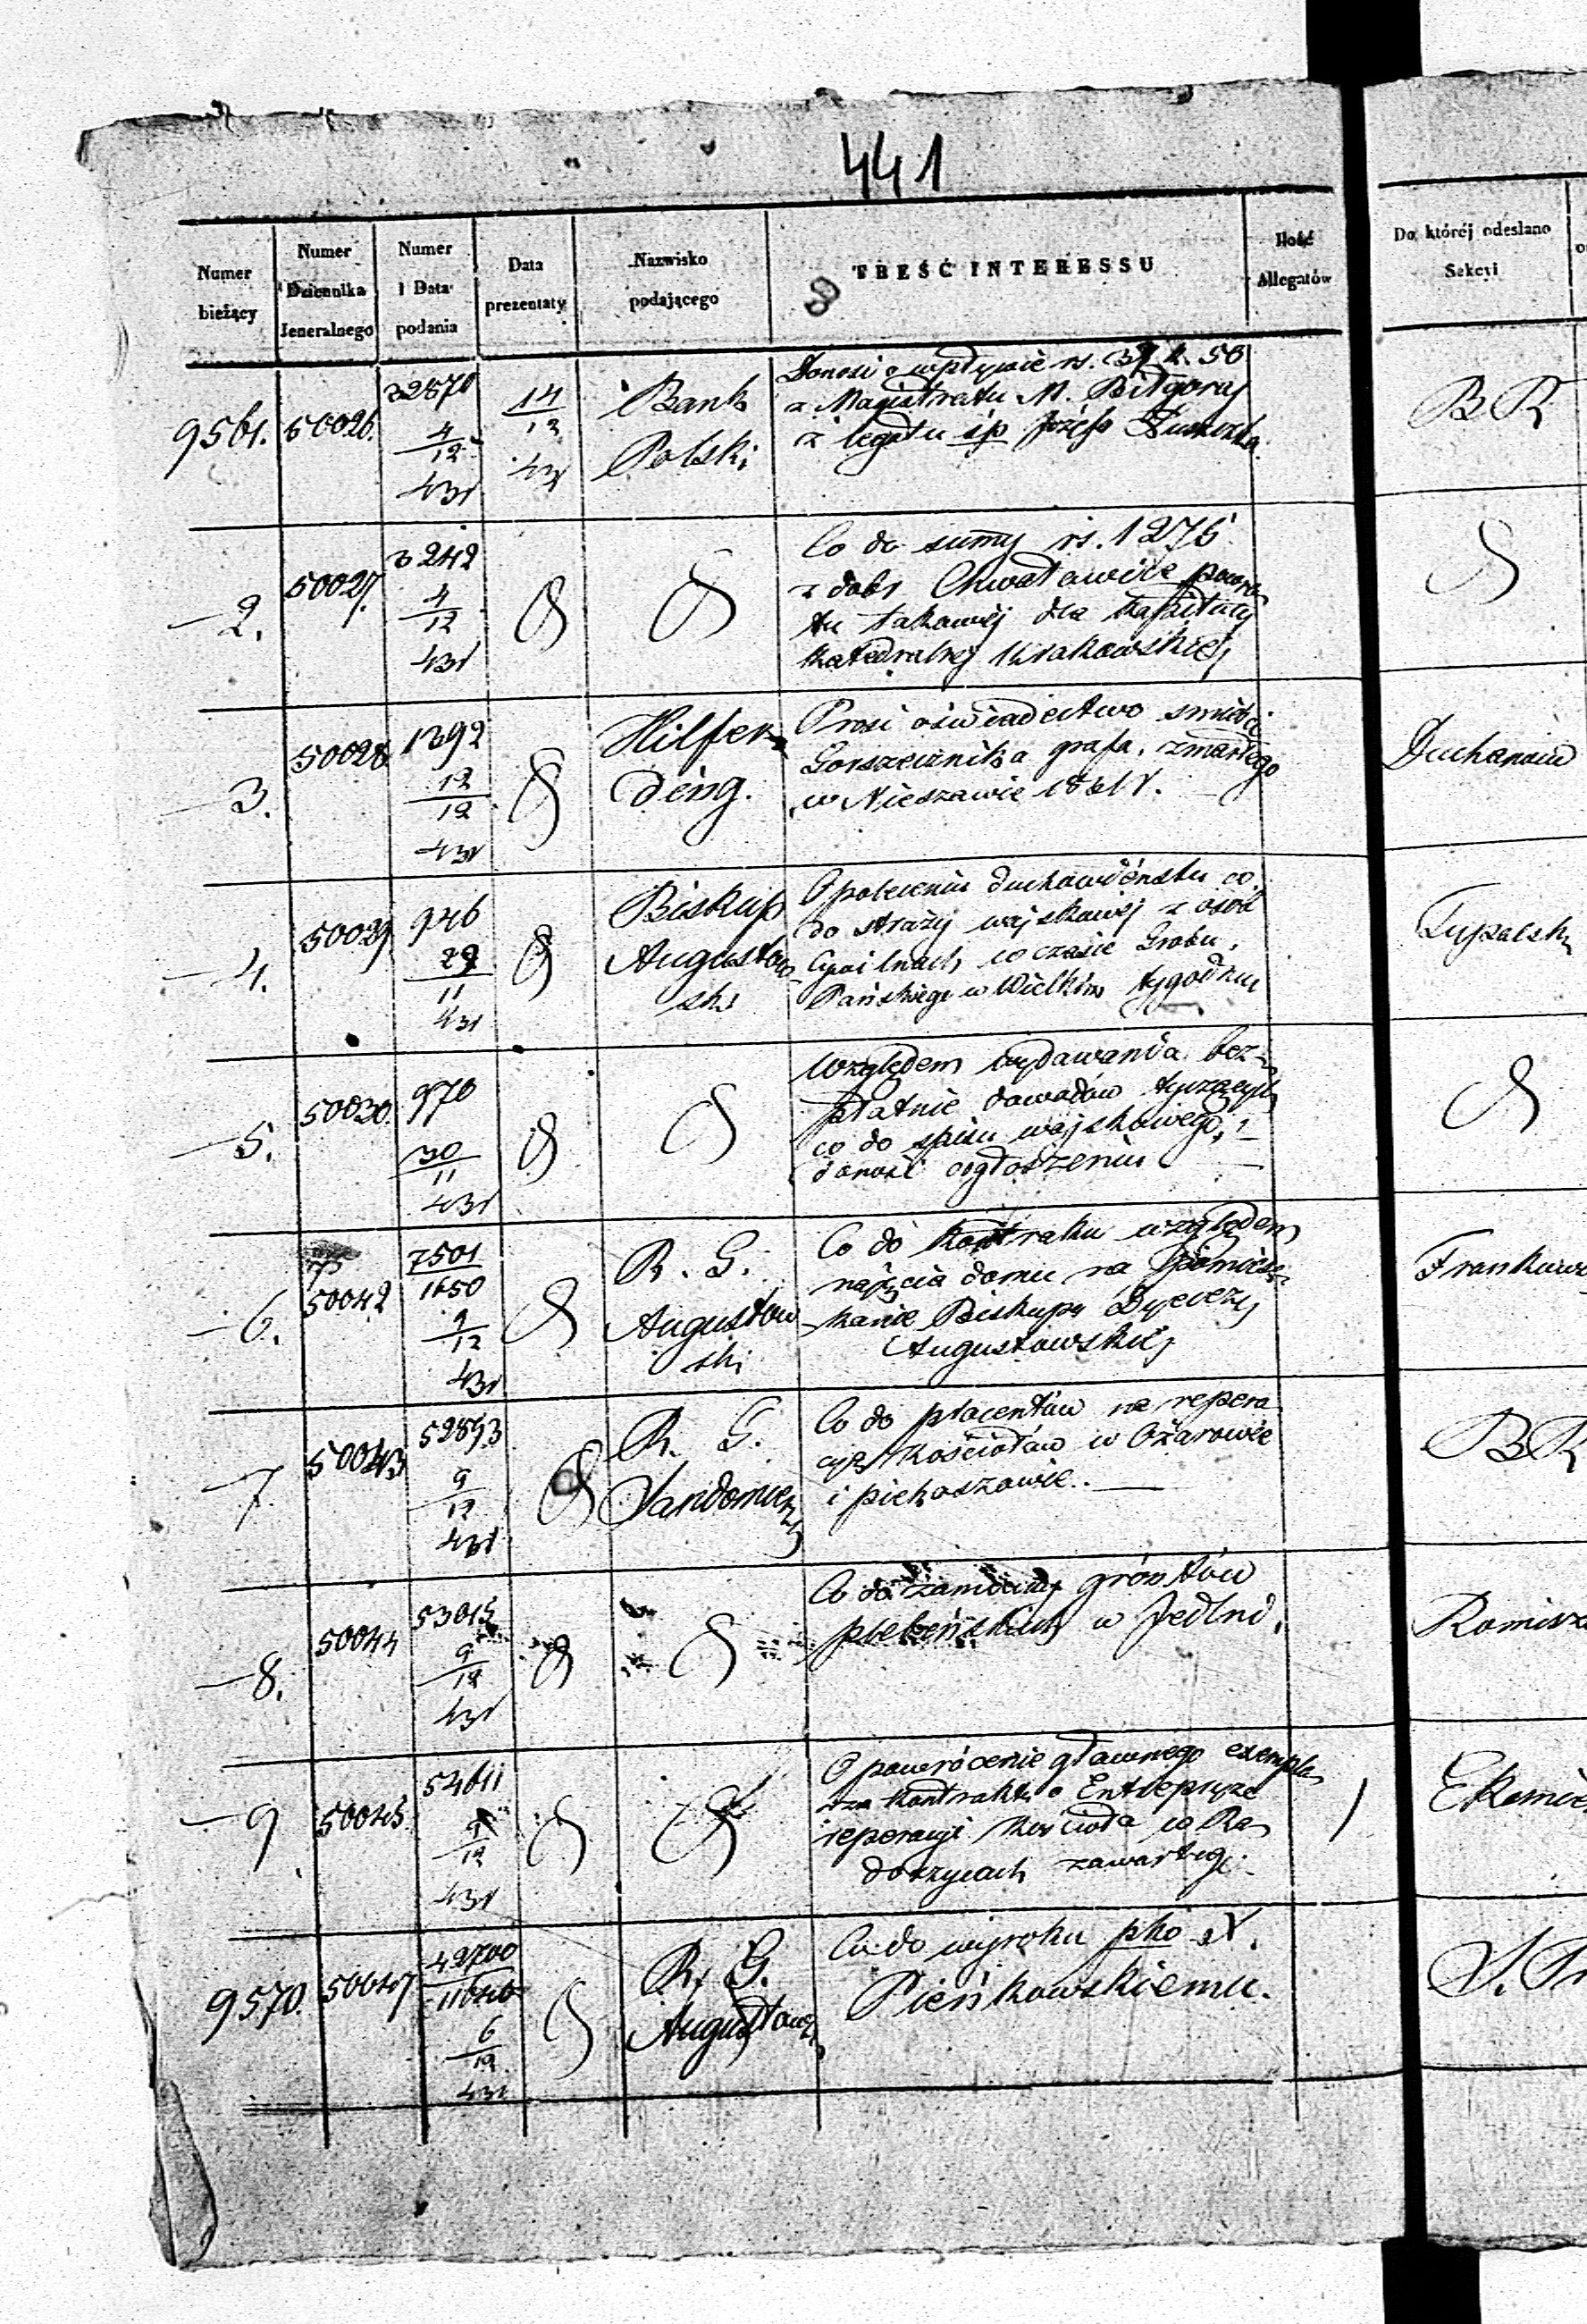 441
Numer bieżący
Numer Dziennika Jeneralnego
Numer i Data podania
Data prezentaty
Nazwisko podającego
TREŚĆ INTERESSU
Ilość Allegatów
Do któréj odesłano Sekcyi
9561. 50026. 4/12 431 14/12 43 Bank Polski
Donosi o wpłynie rs.
z Magistratu M. Biłgoraj
z legatu śp Józefa
B R
2. 50027. 3242 4/12 431
Co do summy rs. 1276
z dobr Chwałowice
takowéj dla Kapituły
Katedralnej Krakowskiej
3. 50028 1392 12/12 431 Hilfer ding.
Prosi o świadectwo śmierci
Gorszecznika grafa, zmarłego
w Nieszawie
4. 50029 946 29/11 431 Biskup Augustow ski
O poleceniu duchowieństwu co
do straży wojskowéj z osób
Cywilnych w czasie Grobu
Pańskiego w Wielkim tygodniu
5. 50030. 970 30/11 431
Względem wydawania bez-
płatnie dowodów tyczących
co do spisu wojskowego,
donosi o ogłoszeniu
6. 50042 7501 1650 9/12 431 R. G. Augustow ski
Co do Kontraktu względem
najęcia domu na pomiesz-
kanie Biskupa Dyecezyi
Augustowskiéj
7 50043 52893 9/12 431 R. G. Sandomierz
Co do placentów na repera
cyą Kościołów w Ożarowie
i piekoszowie. —
B R
8. 50044 53015 9/12 431
Co do zamiany gróntów
plebańskich w Jedlni
9 50045 54611 9/12 431
O powrócenie głównego exempla
rza Kontraktu o Entrepryzę
reperacyi Kościoła w Ra
doszycach zawartego.
1
9570. 50047 49700 6/12 431 R. G. Augustows
Co do wyroku pko X.
Pieńkowskiemu.